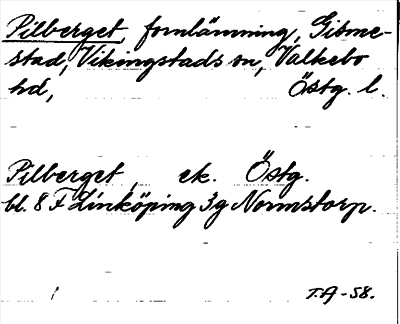 Pilberget, fornlämning, Gisme-
stad, Vikingstads sn, Valkebo
hd, Östg. l.
Pilberget, ek. Östg.
bl. 8 F Linköping 3g Normstorp.
T.A-58.